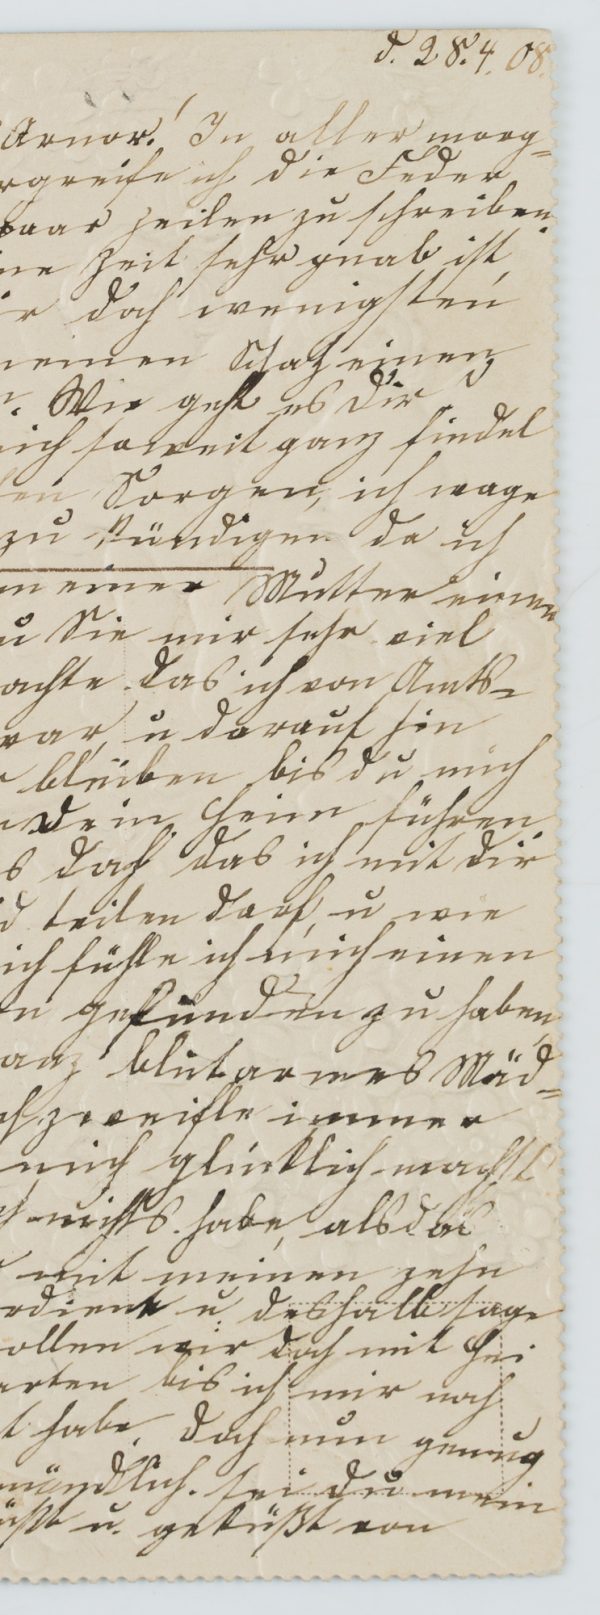 d. 28.4.08.
Arnor! In aller morg-
rgreife ich die Feder
paar zeilen zu schreiben.
ine Zeit sehr gnab ist,
ir doch wenigsten
meinen Schatz einen
n. Wie geht es Dir
mich soweit ganz findel
len Sorgen, ich wage
zu kündigen da ich
on einer Mutter einen
u Sie mir sehr viel
achte, das ich von Amts-
war, u darauf hin
r bleiben bis du mich
n Dein Heim führen
s doch das ich mit dir
id teilen darf, u wie
ich fühle ich mich einen
n gefunden zu haben,
ganz blutarmes Mäd-
ch zweifle immer
mich glücklich machst
ch nichts habe, als das
mit meinen zehn
rdient u deshalb sage
ollen wir doch mit Hei
arten bis ich mir noch
t habe. Doch nun genug
mündlich. sei du mein
üßt u. geküßt von